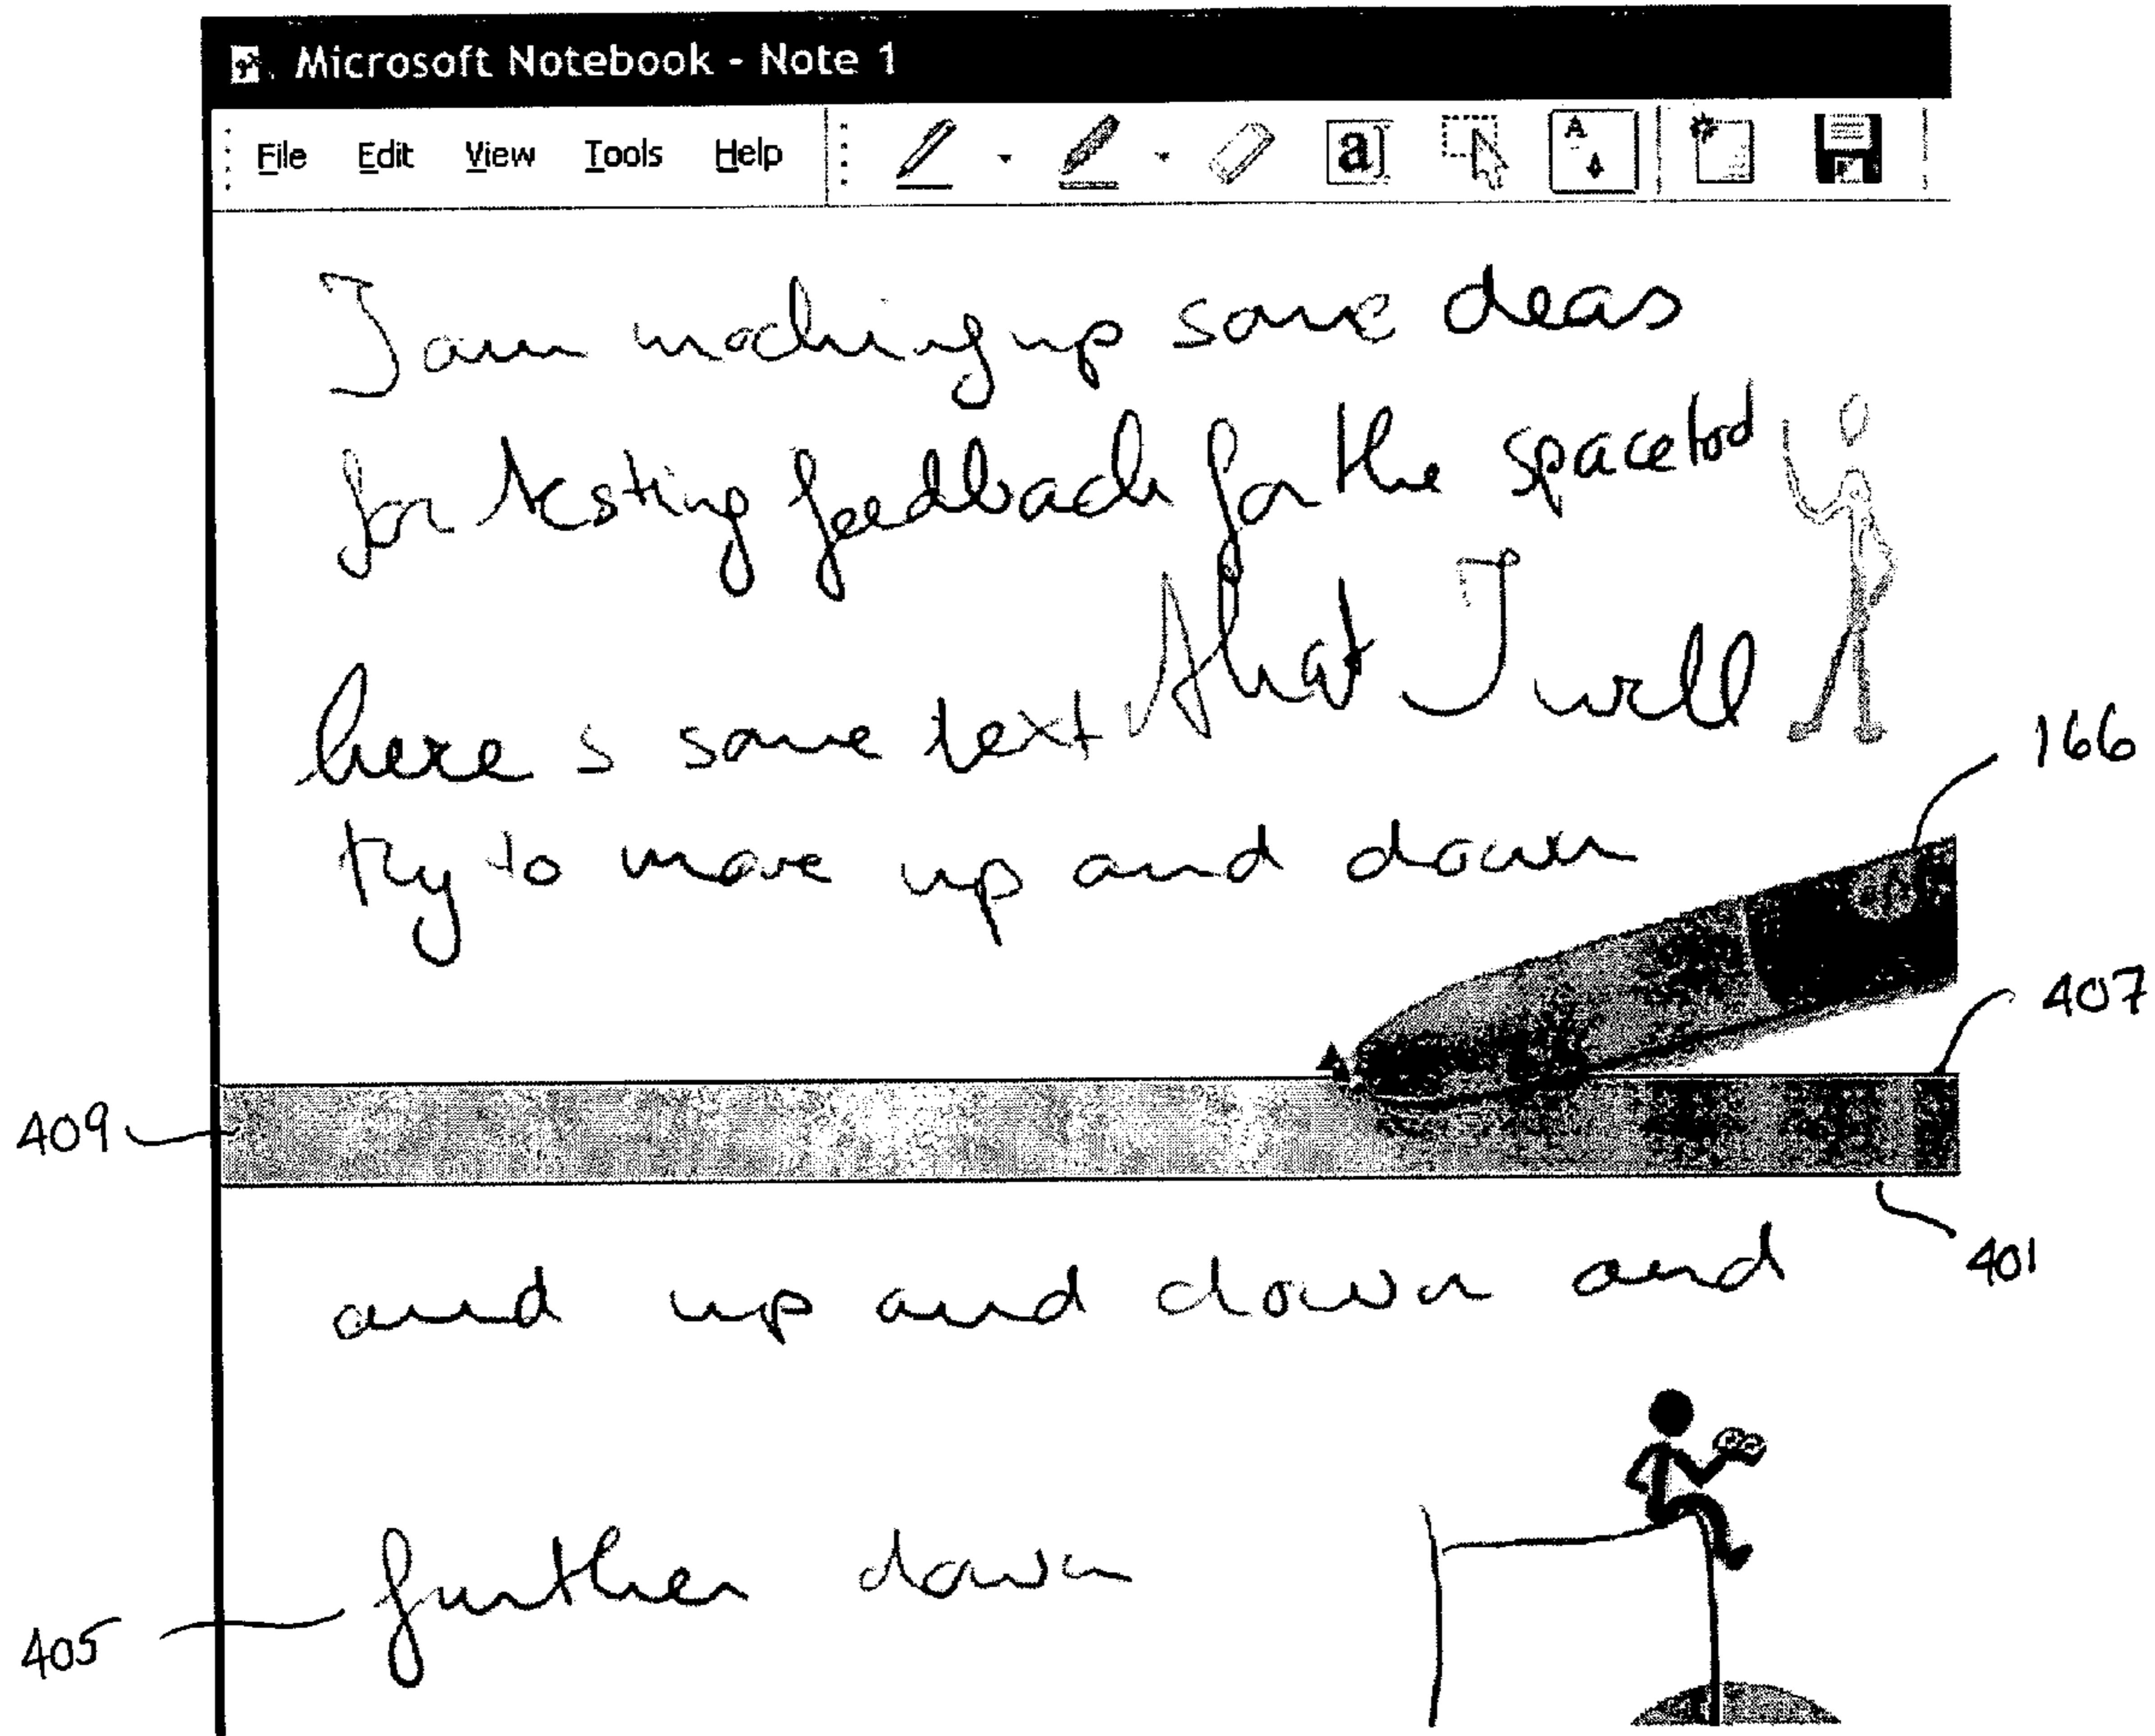 Microsoft Notebook - Note 1
File Edit View Tools Help a A
I am mocking up some deas
for testing feedback for the spacetool
here s some text that I will
166
try to move up and down
407
409
401
and up and down and
further down
405